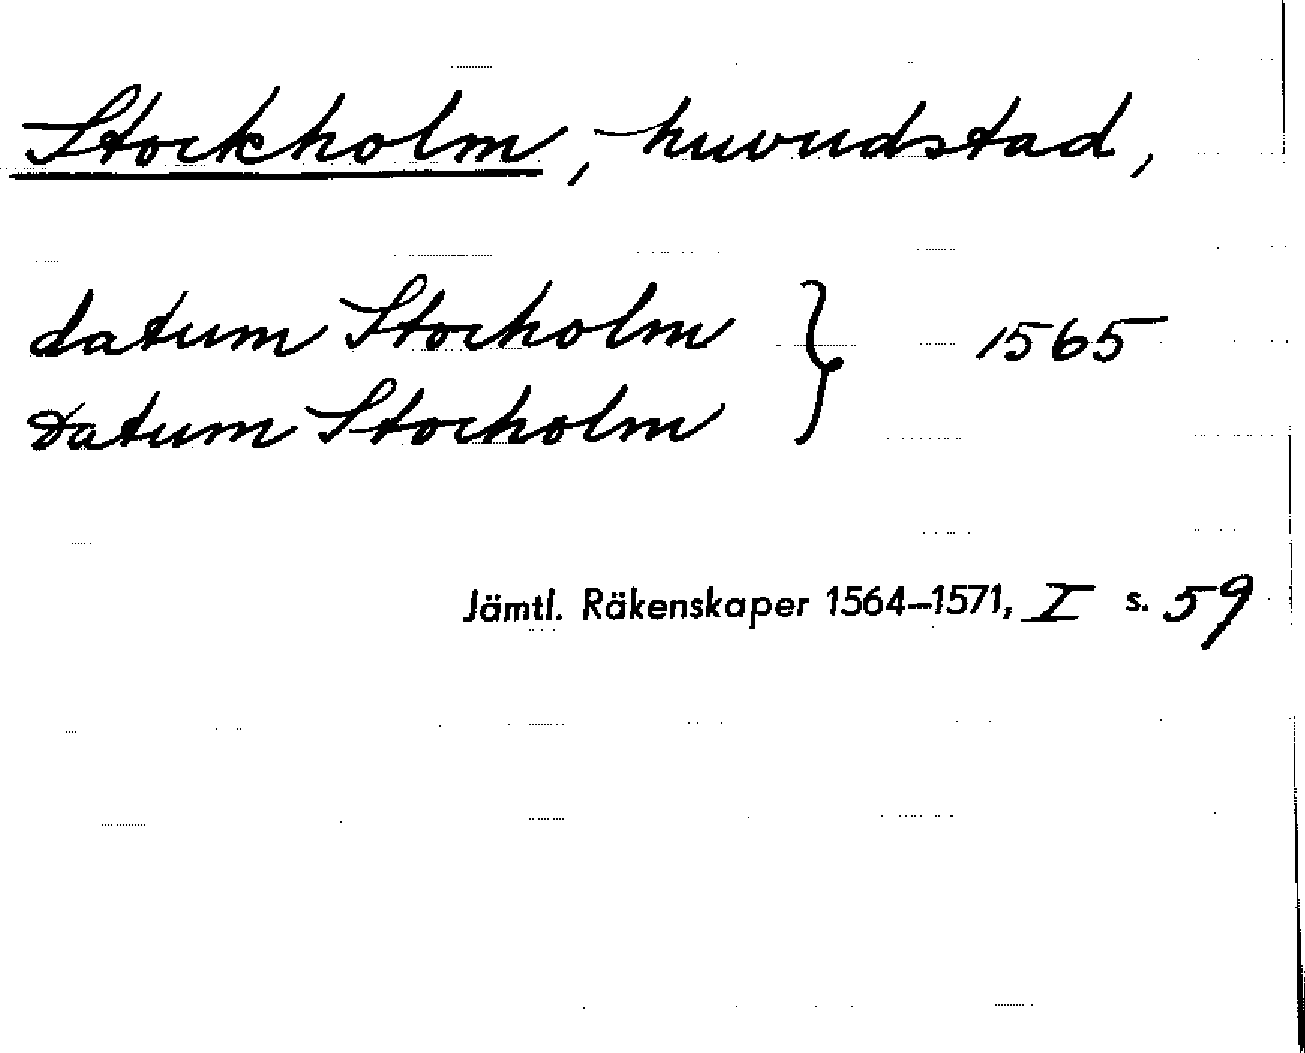 Stockholm, huvudstad,
datum Stocholm } 1565
Datum Stocholm
Jämtl. Räkenskaper 1564–1571, I s. 59